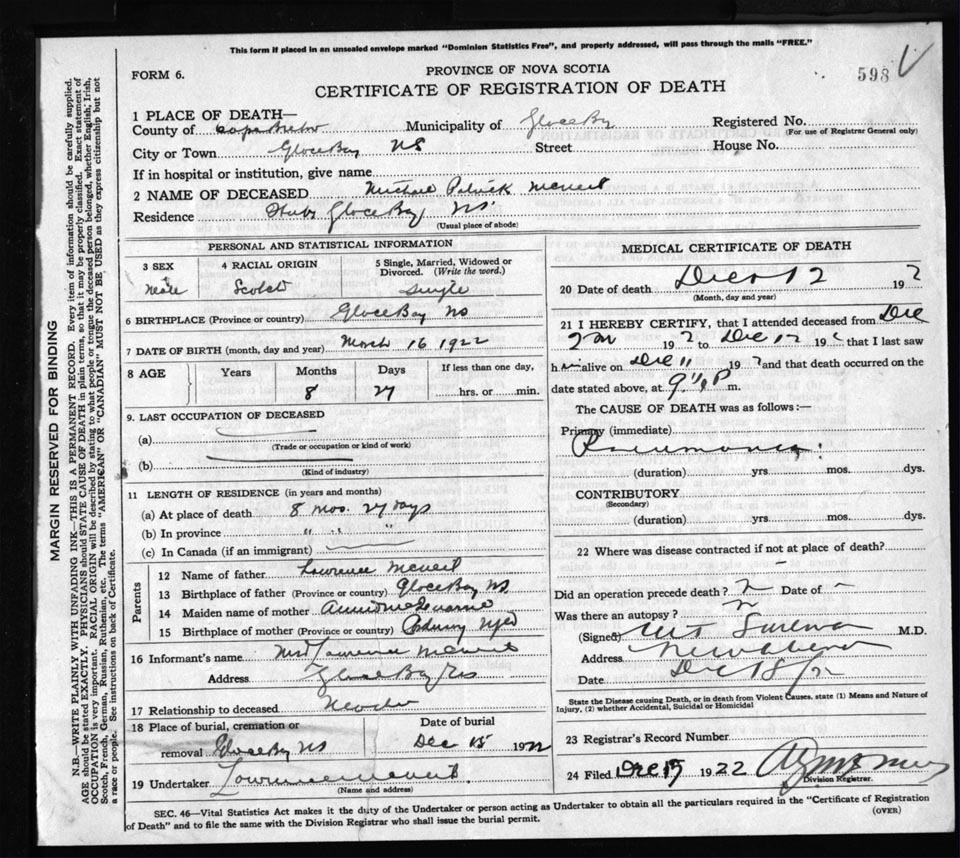 This form if placed in an unsealed envelope marked "Dominion Statistics Free", and properly addressed, will pass through the mails "FREE."
FORM 6.
PROVINCE OF NOVA SCOTIA
598
CERTIFICATE OF REGISTRATION OF DEATH
1 PLACE OF DEATH—
County of Cape Breton Municipality of Glace Bay Registered No.
(For use of Registrar General only)
City or Town Glace Bay NS Street House No.
If in hospital or institution, give name
2 NAME OF DECEASED Michael Patrick McNeil
Residence Glace Bay, NS.
(Usual place of abode)
PERSONAL AND STATISTICAL INFORMATION
3 SEX 4 RACIAL ORIGIN 5 Single, Married, Widowed or Divorced. (Write the word.)
Male Scotch Single
6 BIRTHPLACE (Province or country) Glace Bay NS
7 DATE OF BIRTH (month, day and year) March 16 1922
8 AGE Years Months Days If less than one day,
8 27 hrs. or min.
9. LAST OCCUPATION OF DECEASED
(a)
(Trade or occupation or kind of work)
(b)
(Kind of industry)
11 LENGTH OF RESIDENCE (in years and months)
(a) At place of death 8 mos. 27 days
(b) In province " " "
(c) In Canada (if an immigrant)
Parents
12 Name of father Lawrence McNeil
13 Birthplace of father (Province or country) Glace Bay NS.
14 Maiden name of mother Annie
15 Birthplace of mother (Province or country) Nfld
16 Informant's name Mrs Lawrence McNeil
Address Glace Bay NS
17 Relationship to deceased Mother
18 Place of burial, cremation or removal Glace Bay NS
Date of burial Dec 15 1922
19 Undertaker Lawrence McNeil.
(Name and address)
MEDICAL CERTIFICATE OF DEATH
20 Date of death Dec 12 192 2
(Month, day and year)
21 I HEREBY CERTIFY, that I attended deceased from Dec
192 2 to Dec 12 192 2 that I last saw
h im alive on Dec 11 192 2 and that death occurred on the
date stated above, at 9 P m.
The CAUSE OF DEATH was as follows:—
Primary (immediate)
Pneumonia.
(duration) yrs. mos. dys.
CONTRIBUTORY
(Secondary)
(duration) yrs. mos. dys.
22 Where was disease contracted if not at place of death?
Did an operation precede death? Date of
Was there an autopsy?
(Signed) M.D.
Address
Date Dec
State the Disease causing Death, or in death from Violent Causes, state (1) Means and Nature of Injury, (2) whether Accidental, Suicidal or Homicidal
23 Registrar's Record Number
24 Filed Dec 15 1922
Division Registrar.
SEC. 46—Vital Statistics Act makes it the duty of the Undertaker or person acting as Undertaker to obtain all the particulars required in the "Certificate of Registration
of Death" and to file the same with the Division Registrar who shall issue the burial permit.
(OVER)
MARGIN RESERVED FOR BINDING
N.B.—WRITE PLAINLY WITH UNFADING INK—THIS IS A PERMANENT RECORD. Every item of information should be carefully supplied.
AGE should be stated EXACTLY. PHYSICIANS should STATE CAUSE OF DEATH in plain terms, so that it may be properly classified. Exact statement of
OCCUPATION is very important. RACIAL ORIGIN will be described by stating to what people or tongue the deceased person belonged, whether English, Irish,
Scotch, French, German, Russian, Ruthenian, etc. The terms "AMERICAN" OR "CANADIAN" MUST NOT BE USED as they express citizenship but not
a race or people. See instructions on back of Certificate.